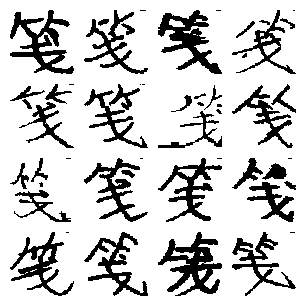 笺笺笺笺
笺笺笺笺
笺笺笺笺
笺笺笺笺